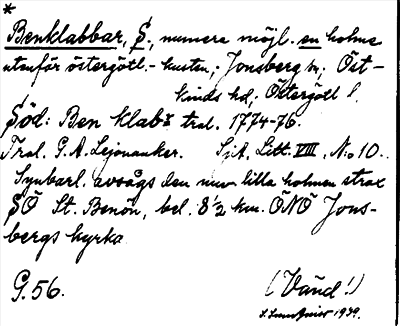 *
Benklabbar, S., numera möjl. en holme
utanför östergötl.-kusten; Jonsberg sn, Öst-
kinds hd, Östergötl.
Söd: Ben klabr tral. 1774-76.
Tral. G.A. Lejonanker. SjA, Litt. VIII, N:o 10.
Synbarl. avsågs den nuv. lilla holmen strax
SÖ St. Benön, bel. 8½ km. ÖNÖ Jons-
bergs kyrka
G.56. (Vänd!)
1939.